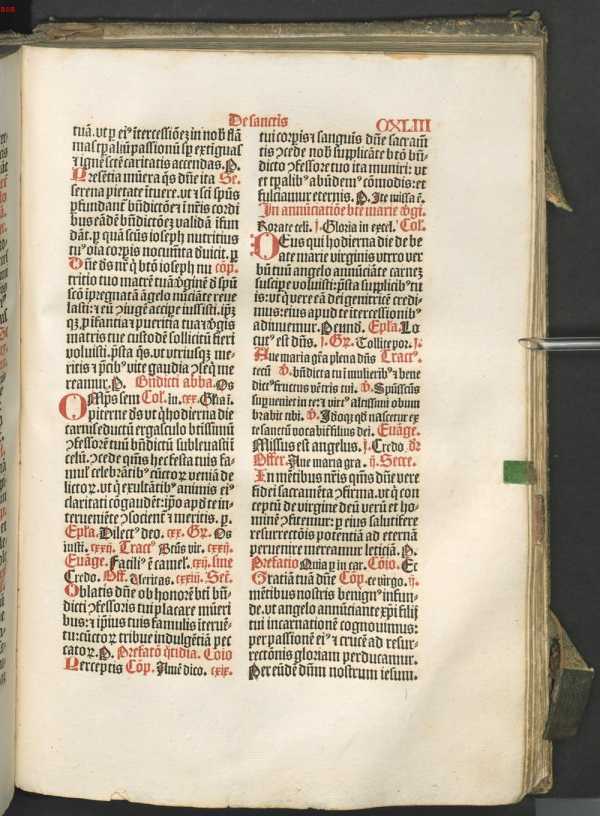 De sanctis
CXLIII
tuā. ut p ei⁹ ītercessiōez in nob̄ flā
mas tp̄aliū passionū sp̄ extiguas
⁊ igne sct̄e caritatis accendas. P.
Presētia mūera q̄s dn̄e ita Se.
serena pietate ītuere. ut ⁊ sci sp̄us
pfundant̄ bn̄dictōe ⁊ in nr̄is cordi
bus eādē bn̄dictōez validā īfun
dāt. p quā scūs ioseph nutritius
tu⁹ oīa corpis nocumēta duicit. p
One ds̄ nr̄ q̄ btō ioseph nu cōp.
tritio tuo matrē tuā ꝟginē d̄ sp̄u
scō ipregnatā āgelo nūciāte reue
lasti: ⁊ eū ꝯiuge accipe iussisti. ip̄z
qz p īfantia ⁊ pueritia tua ⁊ ꝟgis
matris tue custodē sollicitū fieri
voluisti. p̄sta q̄s. ut utriusqz me-
ritis ⁊ p̄cib⁹ vite gaudia ꝯseq̄ me
reamur. P. Bn̄dicti abba. Os
OMps sem Col. iu. cxx. Gl̄ia ī.
piterne ds̄ ut q̄ hodierna die
carnis eductū ergasculo btissimū
ꝯfessorē tuū bn̄dictū subleuasti ī
celū. ꝯcede qm̄s hec festa tuis fa-
mul⁹ celebrātib⁹ cūctoꝝ veniā de
lictoꝝ. ut q̄ exultātib⁹ animis ei⁹
claritati cōgaudēt: ip̄o apd̄ te in-
terueniēte ꝯsocient̄ ⁊ meritis. p.
Ep̄la. Dilect⁹ deo. cxx. Gr̄. Os
iusti. cxxij. Tract⁹ B̄tus vir. cxxij.
Euāge. Facili⁹ ē camel⁹. cxij. sine
Credo. Off. Ueritas. cxxiij. Sec̄.
Oblatis dn̄e ob honorē bt̄i bn̄-
dicti ꝯfessoris tui placare mūeri
bus: ⁊ ip̄ius tuis famulis iteruē-
tu: cūctoꝝ tribue indulgētiā pec
catoꝝ. P. Prefatō q̄tidia. Cōio
Perceptis Cōp. Fiuē dico. cxix.
tui corpis ⁊ sanguīs dn̄e sacramt̄
tis ꝯcede nob̄ supplicāte btō bn̄-
dicto ꝯfessore tuo ita muniri: ut
et tp̄alib⁹ abūdem⁹ cōmodis: et
fulciamur eternis. P. Ite missa ē.
In annūciatiōe bt̄e marie ꝟgī.
Rorate celi. j. Gloria in excel⁹. Col.
DEus qui hodierna die de be
ate marie virginis utero ver
bū tuū angelo annūciāte carnez
suscipe voluisti: p̄sta supplicib⁹ tu
is: ut q̄ vere eā dei genitricē credi-
mus: eius apud te itercessionib⁹
adiuuemur. P eund̄. Ep̄la. Lo
cut⁹ est dn̄s. j. Gr̄. Tollite por. j.
Aue maria gr̄a plena dn̄s Tract⁹.
tecū. ℣. bn̄dicta tu ī mulierib⁹ ⁊ bene
dict⁹ fructus vētris tui. ℣. Sp̄ūscūs
supueniet in te: ⁊ virt⁹ altissimi obum
brabit tibi. ℣. Idoqz qd̄ nascetur ex
te sanctū vocabit̄ filius dei. Euāge.
Missus est angelus. j. Credo. dr̄
Offer. Aue maria gra. ij. Secre.
In mētibus nr̄is qm̄s dn̄e vere
fidei sacramēta ꝯfirma. ut q̄ con
ceptū de virgine deū verū et ho-
minē ꝯfitemur: p eius salutifere
resurrectōis potentiā ad eternā
peruenire mereamur leticiā. P.
Prefatio Quia p in car. Cōio. Ec
Gratiā tuā dn̄e Cōp. ce virgo. ij.
mētibus nostris benign⁹ infun-
de. ut angelo annūciante xp̄i filij
tui incarnationē cognouimus:
per passionē ei⁹ ⁊ crucē ad resur-
rectōnis gloriam perducamur.
Per eūdē dn̄m nostrum iesum.